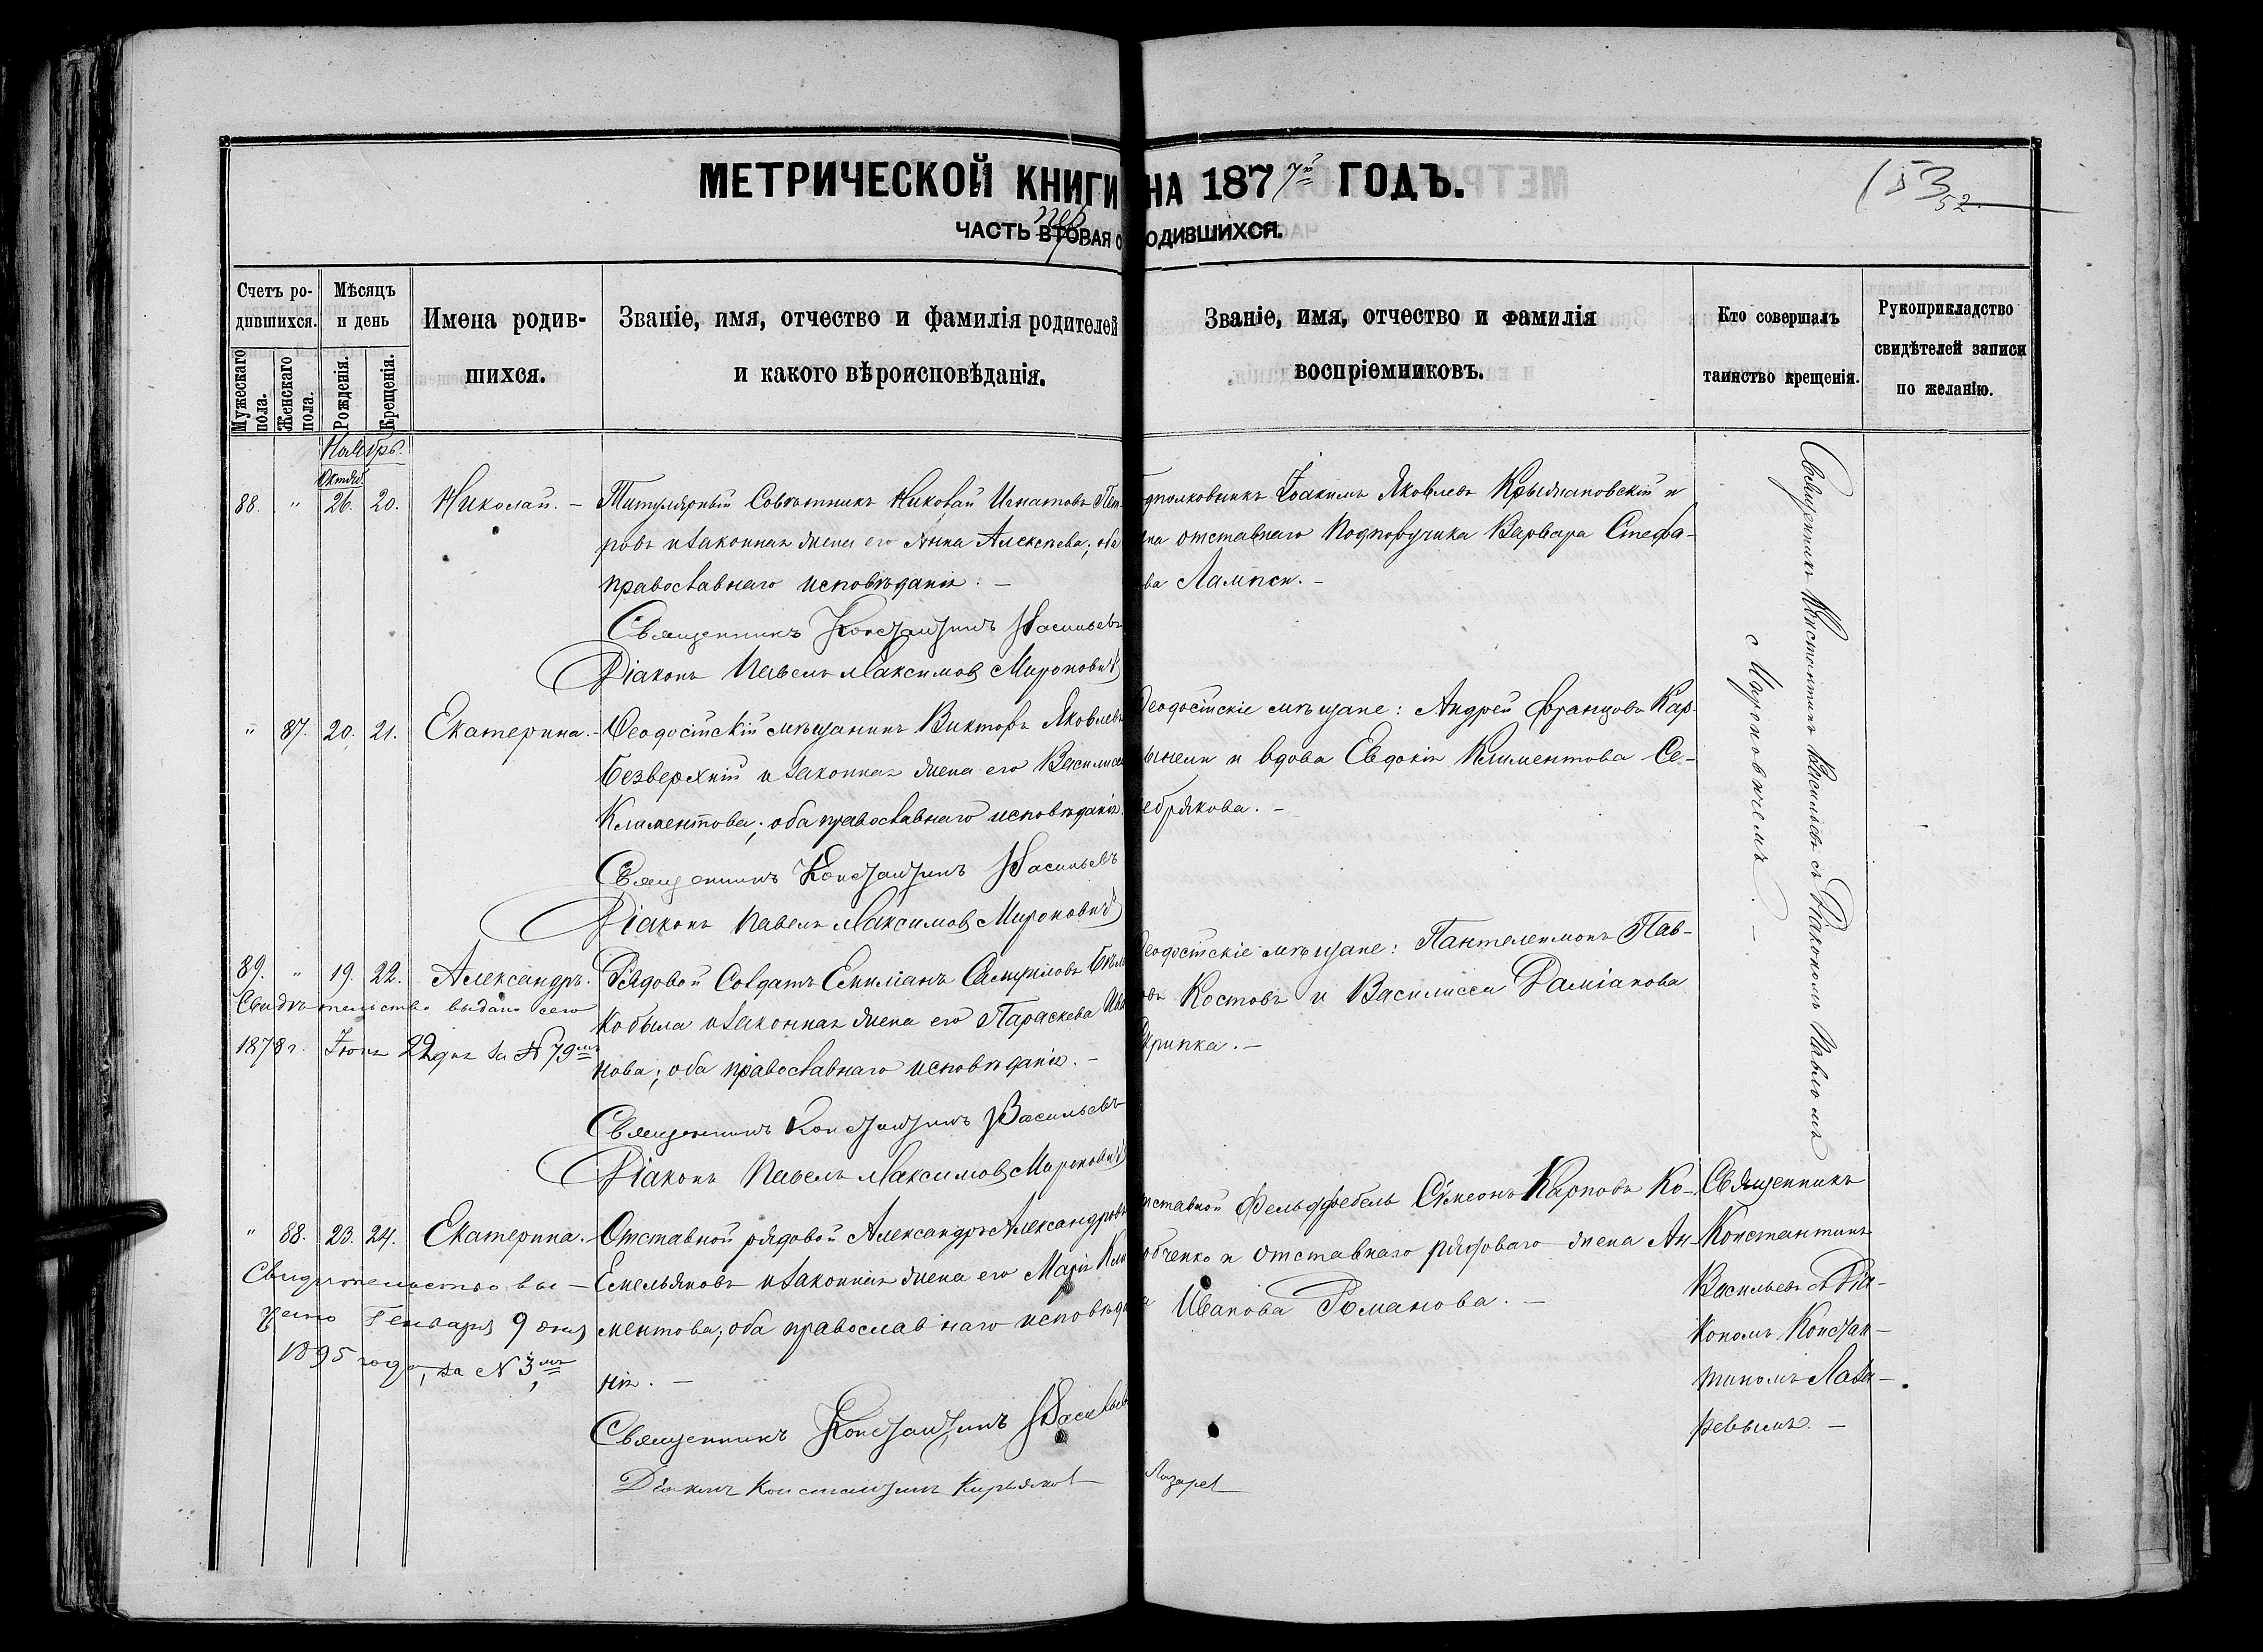 МЕТРИЧЕСКОЙ КНИГИ НА 1877й ГОДЪ.
153
52
пер
ЧАСТЬ ВТОРАЯ О РОДИВШИХСЯ.
Счетъ родившихся.
Мужескаго пола.
Женскаго пола.
Мѣсяцъ и день
Рожденія.
Крещенія.
Имена родившихся.
Званіе, имя, отчество и фамилія родителей
и какого вѣроисповѣданія.
Званіе, имя, отчество и фамилія
воспріемниковъ.
Кто совершалъ
таинство крещенія.
Рукоприкладство
свидѣтелей записи
по желанію.
Ноябрь.
Октяб.
88. " 26. 20. Николай. –
Титулярный Совѣтникъ Николай Игнатовъ Пет-
ровъ и законная жена его Анна Алексѣева; оба
православнаго исповѣданія. –
Священникъ Константинъ Васильевъ
Діаконъ Павелъ Максимов Миронович
дполковникъ Іоакимъ Яковлевъ Крыжановскій и
на отставнаго Подпоручика Варвара Стефа-
ва Лампси. –
" 87. 20. 21. Екатерина. –
Ѳеодосійскій мѣщанинъ Викторъ Яковлевъ
Безверхній и законная жена его Василисса
Климентова; оба православнаго исповѣданія.
Священникъ Константинъ Васильевъ
Діаконъ Павелъ Максимов Миронович
еодосійскіе мѣщане: Андрей Францовъ Кар-
ынели и вдова Евдокія Климентова Се-
ебрякова. –
89. " 19. 22. Александръ.
Свидѣтельство выдано сего
1878 г. Іюня 22 дня за № 79мъ
Рядовой Солдатъ Емиліанъ Самуиловъ Бѣло
кобыла и законная жена его Параскева Ива
нова; оба православнаго исповѣданія. –
Священникъ Константинъ Васильевъ
Діаконъ Павелъ Максимов Миронович
еодосійскіе мѣщане: Пантелеимонъ Пав-
овъ Костовъ и Василисса Даміанова
крипка. –
Священникъ Константинъ Васильевъ съ Діакономъ Павломъ
Мироновичемъ. –
" 88. 23. 24. Екатерина. –
Свидѣтельство вы-
дано Генваря 9 дня
1895 года, за № 3мъ
Отставной рядовой Александръ Александровъ
Емельяновъ и законная жена его Марія Кли
ментова; оба православнаго исповѣда
нія. –
Священникъ Константинъ Васильевъ
Діаконъ Константинъ Лазарев
тставной Фельдфебель Сѵмеонъ Карповъ Ко-
обченко и отставнаго рядоваго жена Ан-
а Иванова Романова. –
Священникъ
Константинъ
Васильевъ съ Діа-
кономъ Констан-
тиномъ Лаза-
ревымъ. –